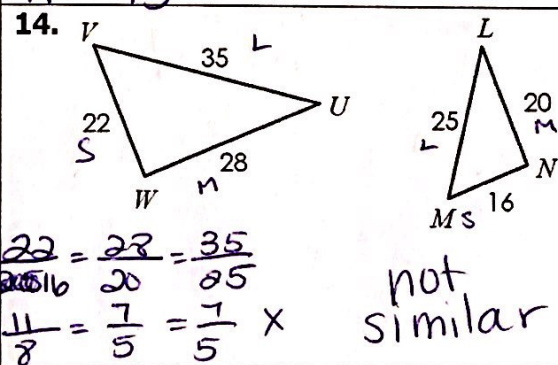 14.
V
35 L
U
22
S
W
M 28
L
25
L
20
M
N
M S 16
22/16 = 28/20 = 35/25
11/8 = 7/5 = 7/5 X
not
similar